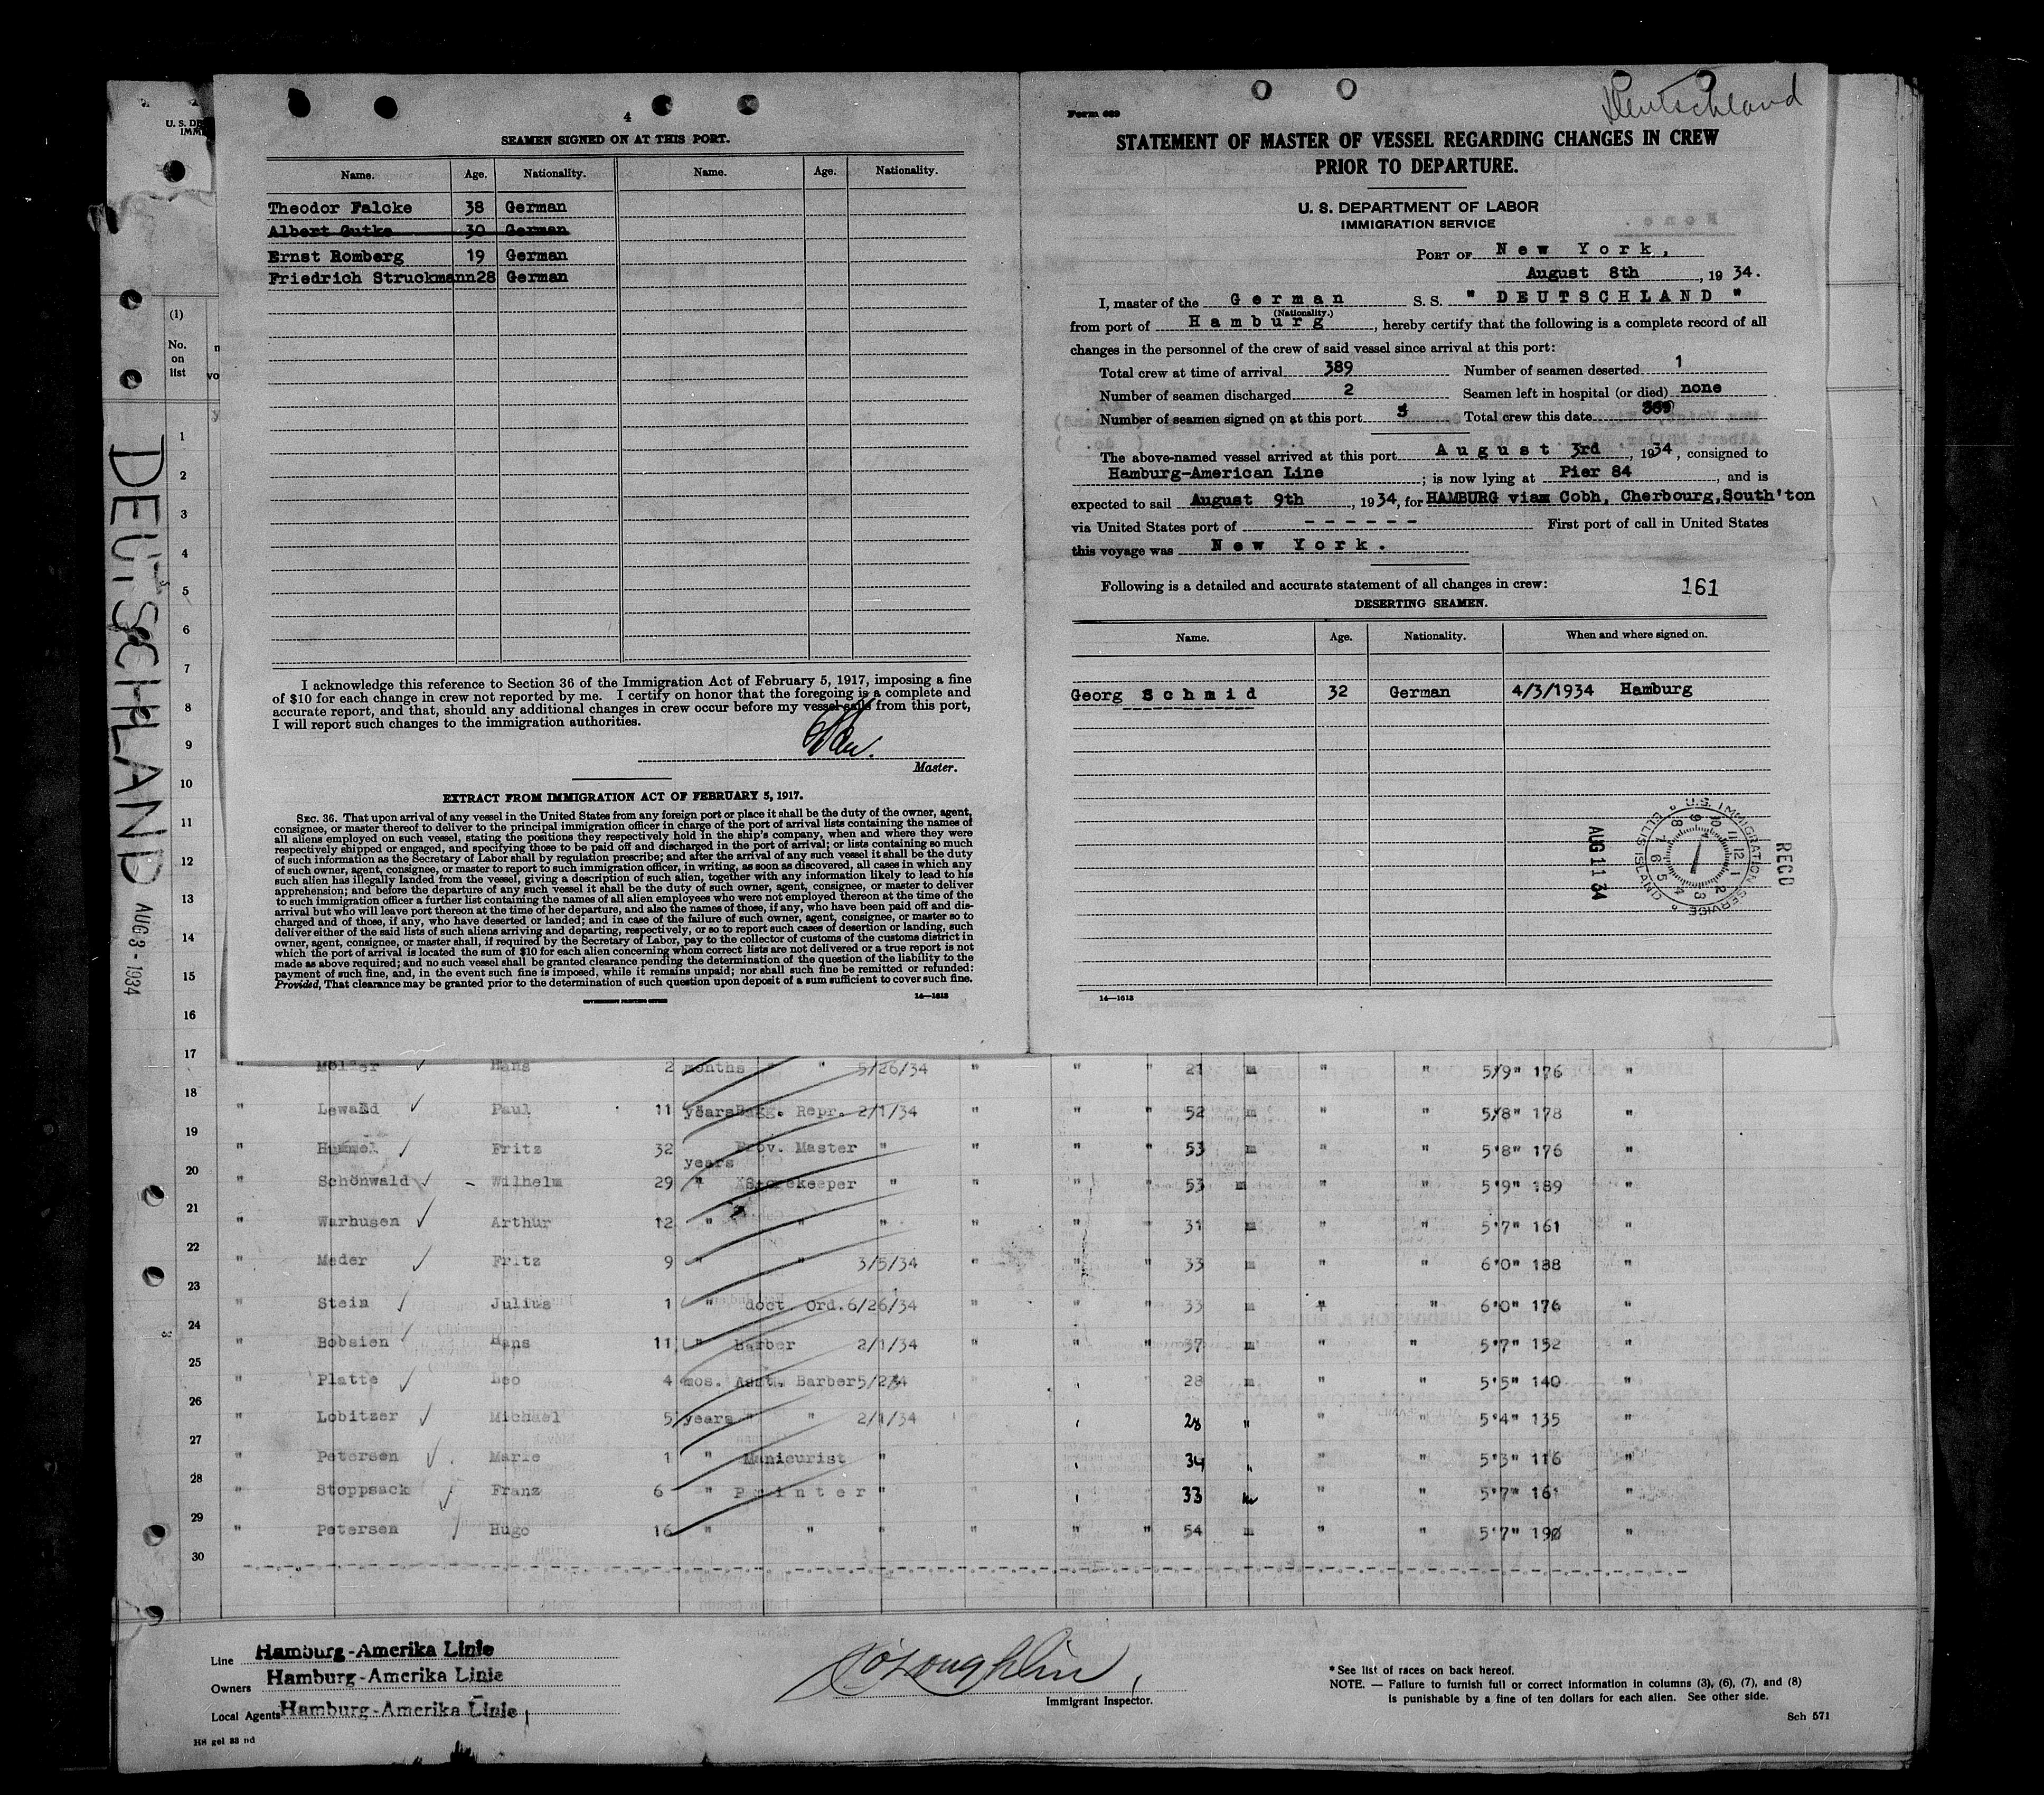 4
SEAMEN SIGNED ON AT THIS PORT.
Name. Age. Nationality. Name. Age. Nationality.
Theodor Falcke 38 German
Albert Gutke 30 German
Ernst Romberg 19 German
Friedrich Struckmann 28 German
I acknowledge this reference to Section 36 of the Immigration Act of February 5, 1917, imposing a fine
of $10 for each change in crew not reported by me. I certify on honor that the foregoing is a complete and
accurate report, and that, should any additional changes in crew occur before my vessel sails from this port,
I will report such changes to the immigration authorities.
Master.
EXTRACT FROM IMMIGRATION ACT OF FEBRUARY 5, 1917.
SEC. 36. That upon arrival of any vessel in the United States from any foreign port or place it shall be the duty of the owner, agent,
consignee, or master thereof to deliver to the principal immigration officer in charge of the port of arrival lists containing the names of
all aliens employed on such vessel, stating the positions they respectively hold in the ship's company, when and where they were
respectively shipped or engaged, and specifying those to be paid off and discharged in the port of arrival; or lists containing so much
of such information as the Secretary of Labor shall by regulation prescribe; and after the arrival of any such vessel it shall be the duty
of such owner, agent, consignee, or master to report to such immigration officer, in writing, as soon as discovered, all cases in which any
such alien has illegally landed from the vessel, giving a description of such alien, together with any information likely to lead to his
apprehension; and before the departure of any such vessel it shall be the duty of such owner, agent, consignee, or master to deliver
to such immigration officer a further list containing the names of all alien employees who were not employed thereon at the time of the
arrival but who will leave port thereon at the time of her departure, and also the names of those, if any, who have been paid off and dis-
charged and of those, if any, who have deserted or landed; and in case of the failure of such owner, agent, consignee, or master so to
deliver either of the said lists of such aliens arriving and departing, respectively, or so to report such cases of desertion or landing, such
owner, agent, consignee, or master shall, if required by the Secretary of Labor, pay to the collector of customs of the customs district in
which the port of arrival is located the sum of $10 for each alien concerning whom correct lists are not delivered or a true report is not
made as above required; and no such vessel shall be granted clearance pending the determination of the question of the liability to the
payment of such fine, and, in the event such fine is imposed, while it remains unpaid; nor shall such fine be remitted or refunded:
Provided, That clearance may be granted prior to the determination of such question upon deposit of a sum sufficient to cover such fine.
GOVERNMENT PRINTING OFFICE 14—1613
Deutschland
Form 689
STATEMENT OF MASTER OF VESSEL REGARDING CHANGES IN CREW
PRIOR TO DEPARTURE.
U. S. DEPARTMENT OF LABOR
IMMIGRATION SERVICE
PORT OF New York,
August 8th, 1934.
I, master of the German S. S. " DEUTSCHLAND "
(Nationality.)
from port of Hamburg, hereby certify that the following is a complete record of all
changes in the personnel of the crew of said vessel since arrival at this port:
Total crew at time of arrival 389 Number of seamen deserted 1
Number of seamen discharged 2 Seamen left in hospital (or died) none
Number of seamen signed on at this port 3 Total crew this date 389
The above-named vessel arrived at this port August 3rd, 1934, consigned to
Hamburg-American Line; is now lying at Pier 84, and is
expected to sail August 9th, 1934, for HAMBURG viam Cobh, Cherbourg, South'ton
via United States port of - - - - - - First port of call in United States
this voyage was New York.
Following is a detailed and accurate statement of all changes in crew: 161
DESERTING SEAMEN.
Name. Age. Nationality. When and where signed on.
Georg Schmid 32 German 4/3/1934 Hamburg
RECD
U.S. IMMIGRATION SERVICE
ELLIS ISLAND
AUG 11 34
14—1613
U. S. DE
IMMI
(1)
No.
on
list
DEUTSCHLAND AUG 3 - 1934
1
2
3
4
5
6
7
8
9
10
11
12
13
14
15
16
17 Mölder Hans 2 months " " 5/26/34 " " 21 m " " 5/9" 176 "
18 " Lewald Paul 11 years Bagg. Repr. 2/1/34 " " " 52 m " " 5/8" 178 "
19 " Hummel Fritz 32 years Prov. Master " " " " 53 m " " 5'8" 176 "
20 " Schönwald - Wilhelm 29 " Storekeeper " " " " 53 m " " 5'9" 189 "
21 " Warhusen Arthur 12 " " " " " " 31 m " " 5'7" 161 "
22 " Meder Fritz 9 " " 3/5/34 " " " 33 m " " 6'0" 188 "
23 " Stein Julius 1 " doct Ord. 6/26/34 " " " 33 m " " 6'0" 176 "
24 " Bobsien Hans 11 " Barber 2/1/34 " " " 37 m " " 5'7" 152 "
25 " Platte Leo 4 mos. Asnt. Barber 5/2 34 28 m " " 5'5" 140 "
26 " Lobitzer Michael 5 years " " 2/1/34 28 " " " 5'4" 135 "
27 " Petersen Marie 1 " Manicurist " 34 " " 5'3" 116 "
28 " Stoppsack Franz 6 " Printer " 33 m " " 5'7" 161 "
29 " Petersen Hugo 16 " " " " " " 54 m " " 5'7" 190 "
30
Line Hamburg-Amerika Linie
Owners Hamburg-Amerika Linie
Local Agents Hamburg-Amerika Linie
H8 gel 33 nd
O'Loughlin
Immigrant Inspector.
* See list of races on back hereof.
NOTE. — Failure to furnish full or correct information in columns (3), (6), (7), and (8)
is punishable by a fine of ten dollars for each alien. See other side.
Sch 571